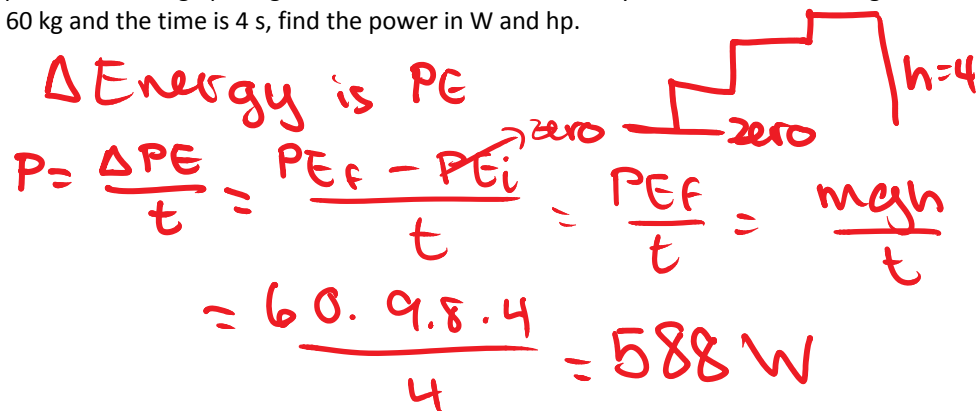 60 kg and the time is 4 s, find the power in W and hp.
Δ Energy is PE
h=4
zero zero
P= ΔPE/t = PEF - PEi/t = PEF/t = mgh/t
= 60. 9.8.4/4 = 588 W